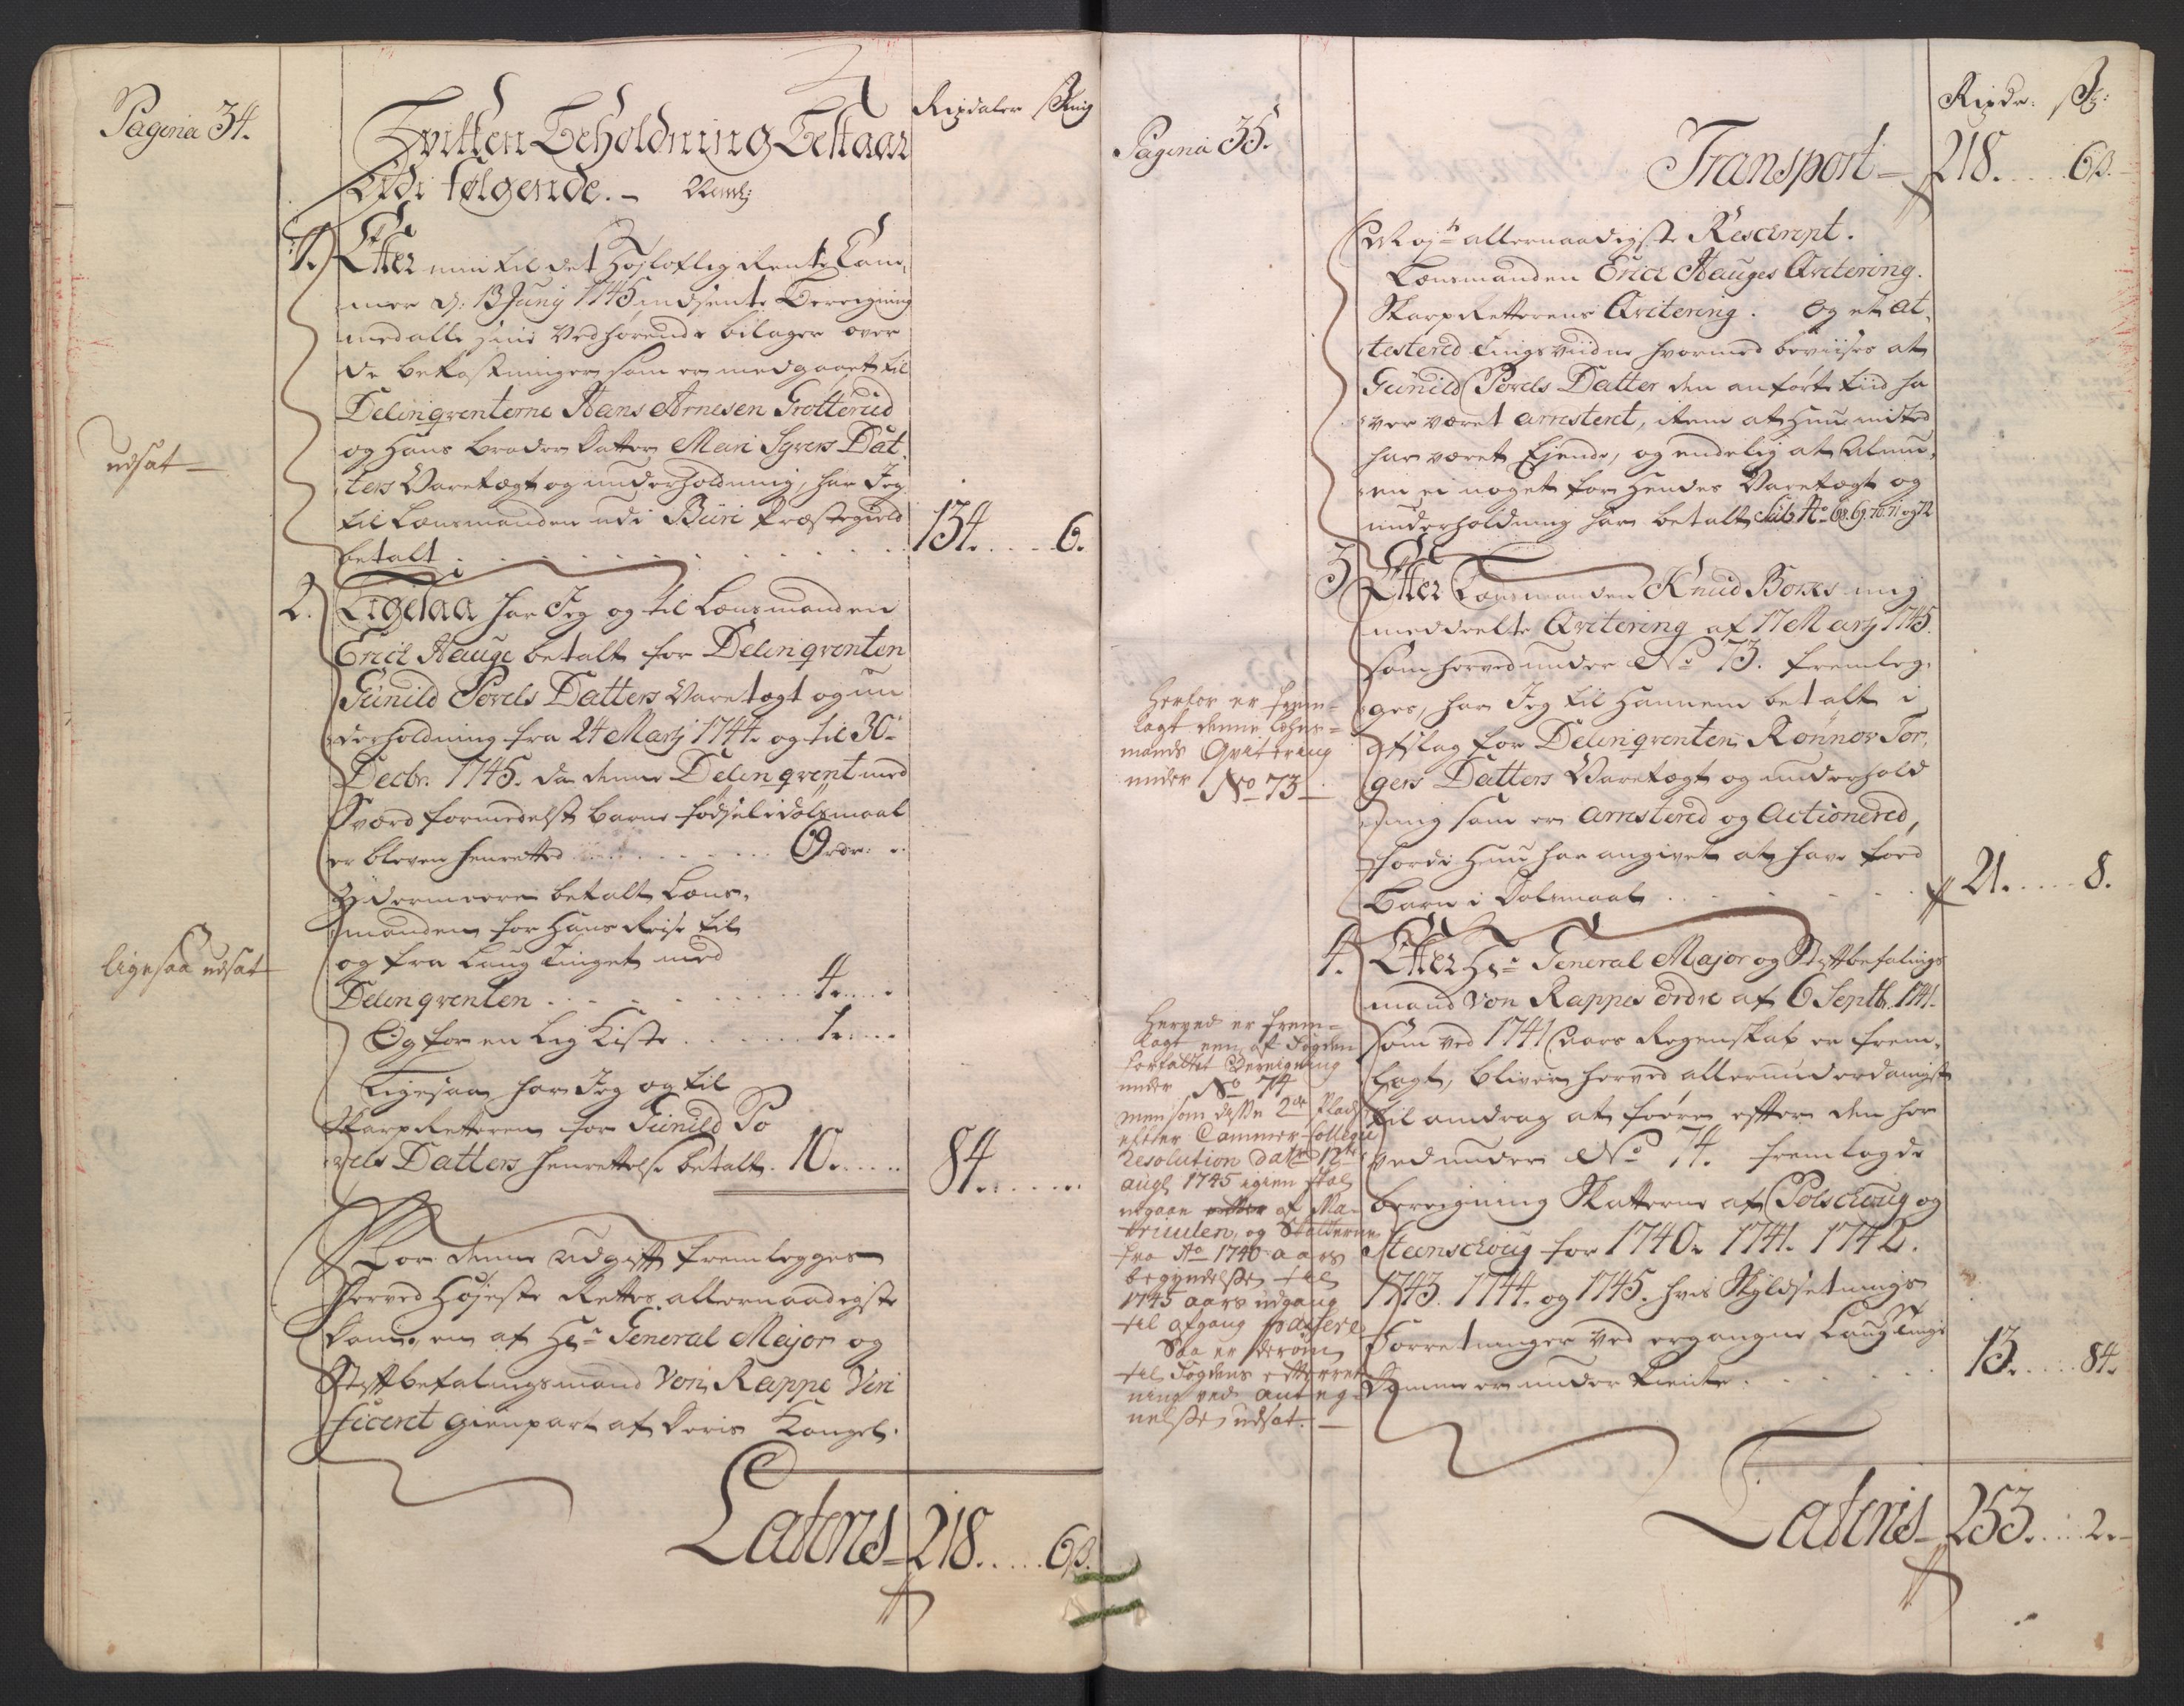 Pagina 34.
Rixdaler Skillg
Hvilken Beholdning Bestaar
Udi følgende. – Nemlig
1. Efter min til det Høyloflig Rente Cam„
mer d: 13 Junij 1745 indsendte Beregning
med alle sine Vedhørende bilager over
de bekostninger som er medgaaet til
Delinqventerne Hans Arnesen Grotterud
udsat –
og hans broder datter Mari Syvers Dat„
ters Varetægt og underholdning, har Jeg
til Lensmanden udi Buri Præstegield
betalt . . . . 134. . . . 6.
2. Ligesaa har Jeg og til Lensmanden
Erich Hauge betalt for Delinqventen
Gunild Povels Datters Varetægt og un„
derholdning fra 24 Martij 1744. og til 30te
Decbr. 1745. da denne Delinqvent med
Sværd formedelst barne fødsel i dølgsmaal
er bleven henrettet . . . . 69 rdr: „
Ydermeere betalt Lens„
manden for hans Reise til
ligesaa udsat
og fra Laug Tinget med
Delinqventen . . . . 4. . . .
Og for en Lig Kiste . . . . 1. . . .
Ligesaa har Jeg og til
SkarpRetteren for Gunild Po„
vels Datters henrettelse betalt. 10. . . . 84. . . .
For denne Udgift fremlegges
herved Høyeste Rettes allernaadigste
Dom, en af Hr General Major og
Stiftbefalingsmand Von Rappe Veri„
ficeret gienpart af deris Kongel:
Lateris – 218. . . . 6 ß.
Pagina 35.
Rixdr. ß:
Transport – 218. . . . 6 ß.
Majts allernaadigste Rescript.
Lensmanden Erich Hauges Qvitering.
SkarpRetterens Qvitering. Og et at„
testered Tingsvidne hvormed bevises at
Gunild Povels Datter den anførte tiid ha„
ver været arresteret, item at hun intet
har været Ejende, og endelig at Almu„
en ei noget for hendes Varetægt og
underholdning har betalt Sub No 68. 69. 70. 71 og 72
3. Efter Lensmanden Knud Borses mig
meddeelte Qvitering af 17 Martij 1745.
som herved under No 73. fremleg„
ges, har Jeg til hannem betalt i
afslag for Delinqventen Rønnov Tor„
gers Datters Varetægt og underhold„
ning som er arrestered og Actionered,
fordi hun har angivet at have fød
Barn i Dølsmaal . . . . 21. . . . 8.
Herfor er frem=
lagt denne Lehns=
mands Qvitering
under No 73
4. Efter Hr General Major og Stiftbefalings
mand Von Rappes ordre af 6 Septbr. 1741.
som ved 1741 Aars Regenskab er frem„
lagt, bliver herved allerunderdanigst
til andrag at føre efter den her
ved under No 74. fremlagde
beregning Skatterne af Polschoug og
Steenschoug for 1740. 1741. 1742.
1743. 1744. og 1745. hvis Skyldsetnings
Forretninger ved ergangne Laugtings
Domme er underkiendte . . . . 13. . . . 84.
Herved er frem=
lagt een af Fogden
forfattet Beregning
under No 74
men som disse 2de Pladser
efter Cammer-Collegii
Resolution datr 12te
augs 1745 igien skal
udgaae af Ma„
triculen, og Skatterne
fra Ao 1740 aars
begyndelse til
1745 aars udgang
til afgang passere
Saa er derom
til Fogdens efterret
ning ved antegn
nelse udsat. –
Lateris – 253. . . . 2. –